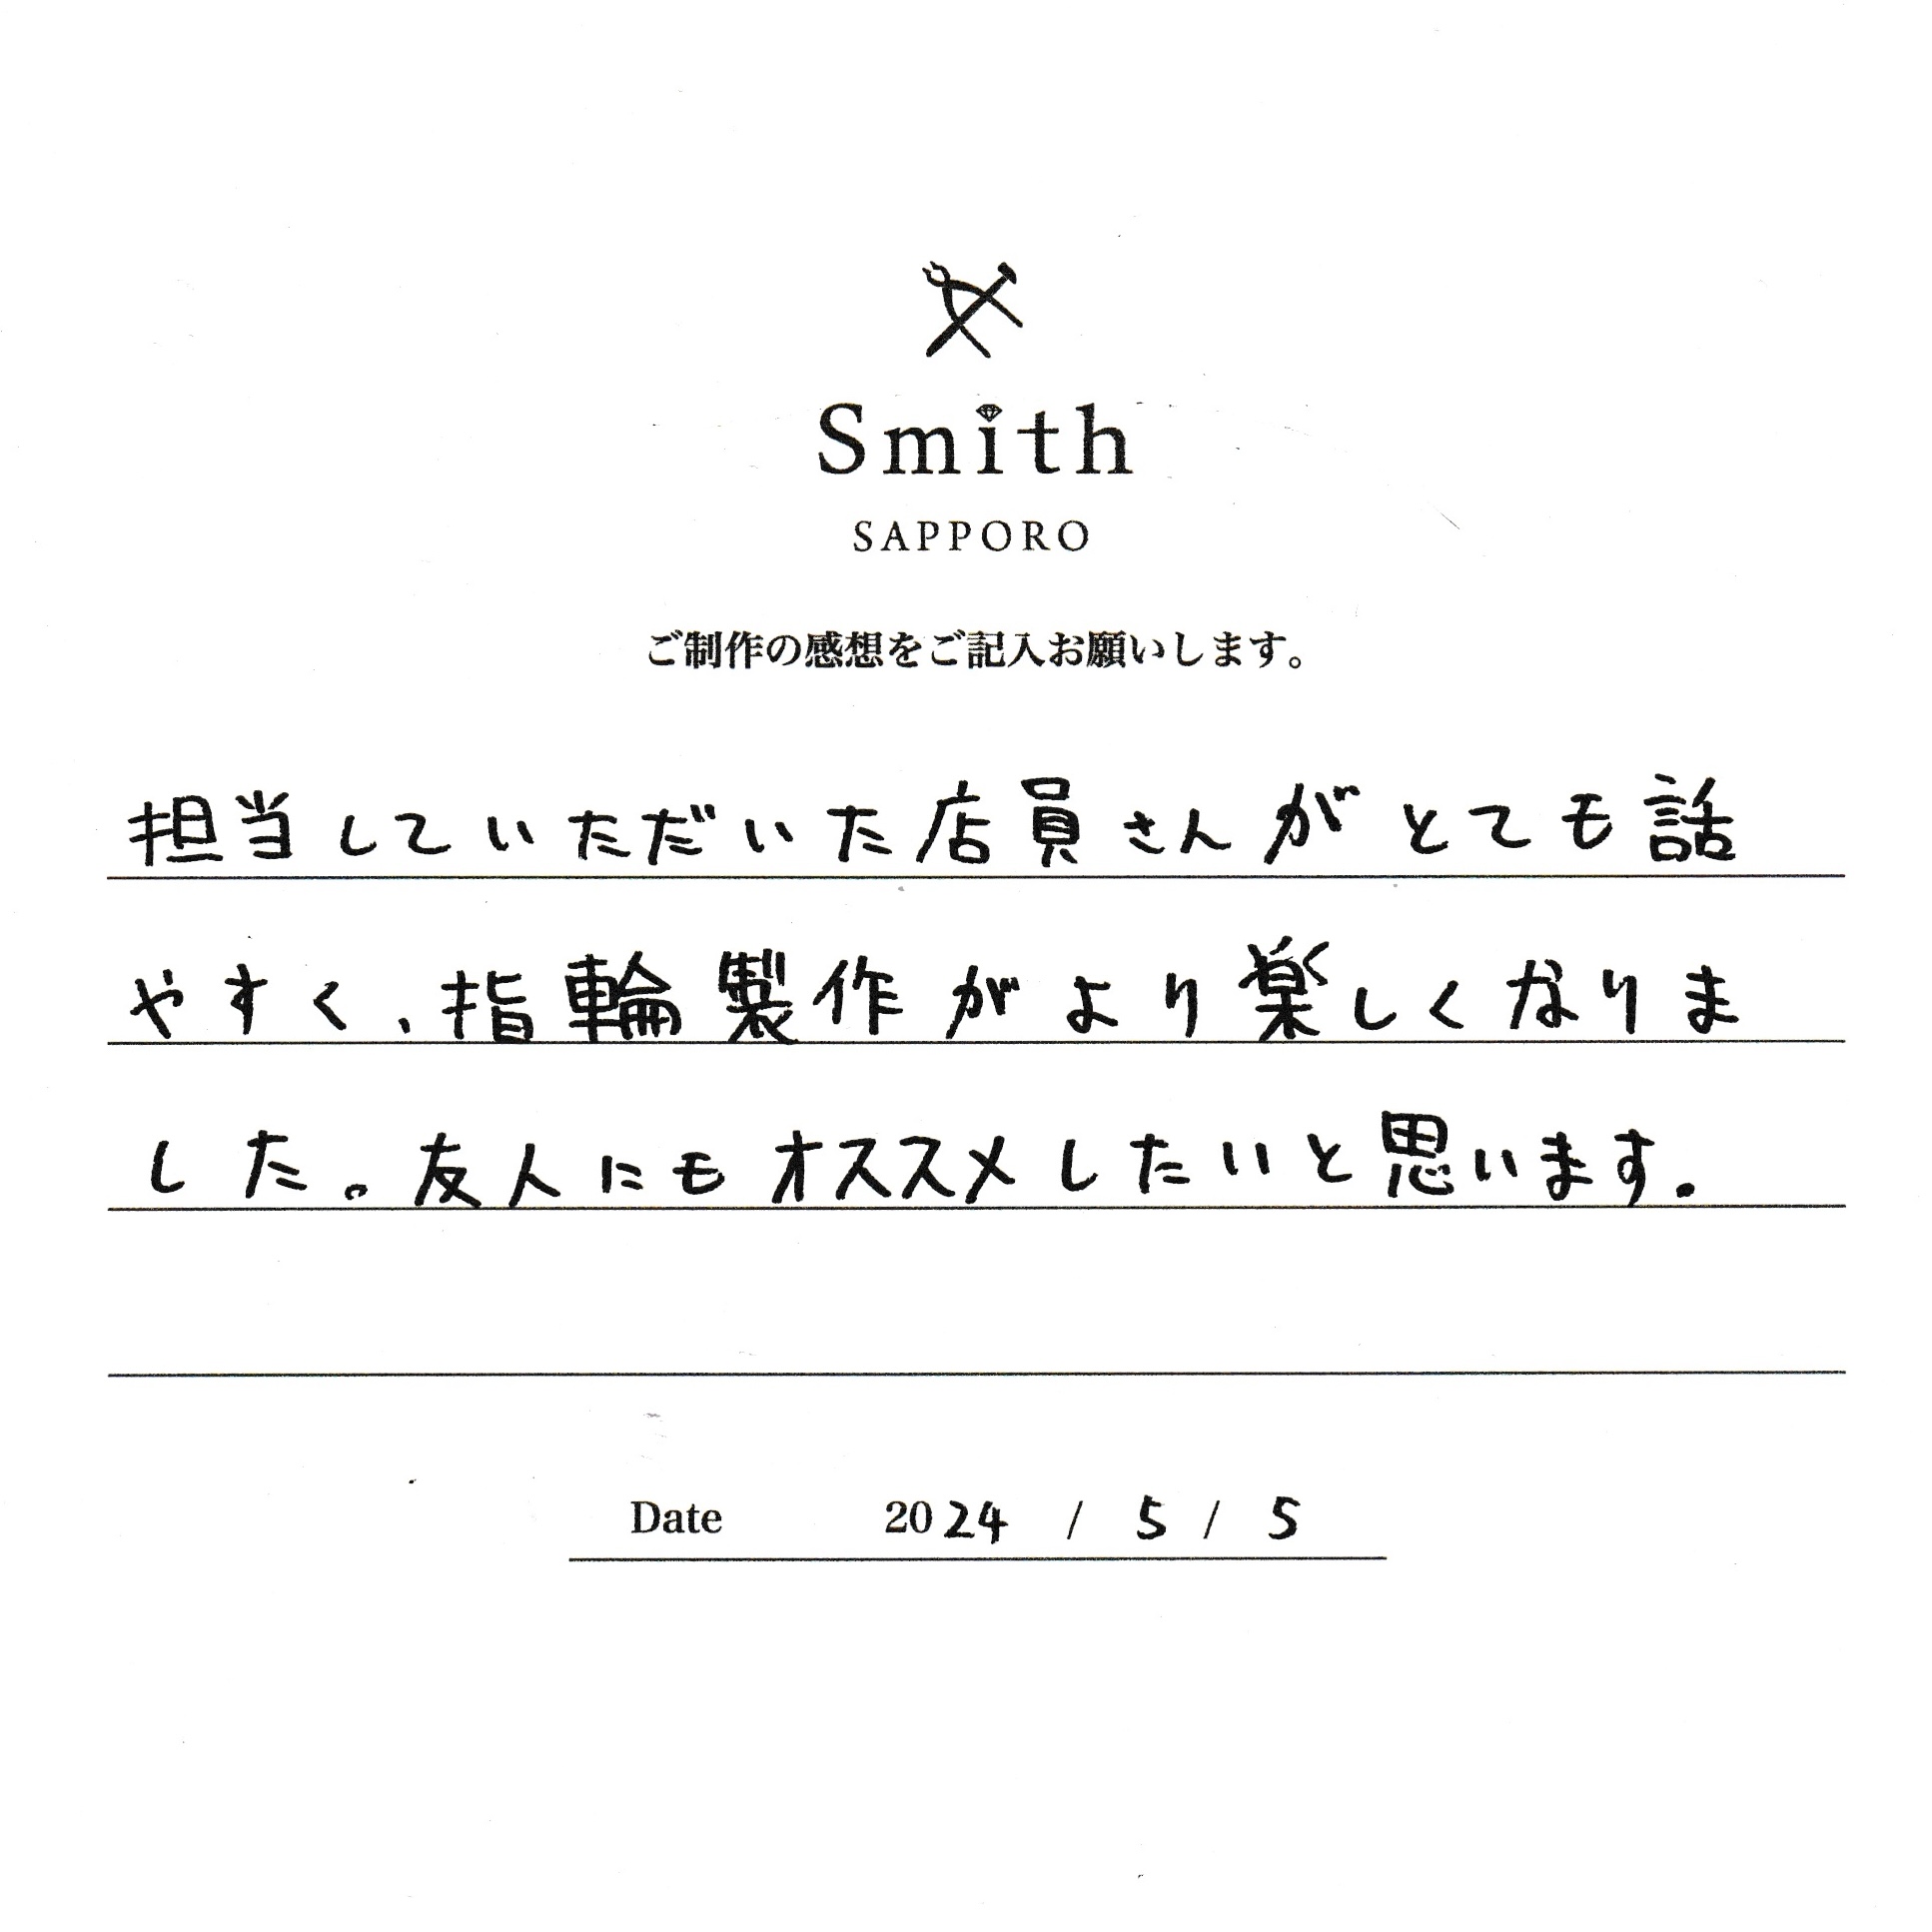 Smith
SAPPORO
ご制作の感想をご記入お願いします。
担当していただいた店員さんがとても話
やすく、指輪製作がより楽しくなりま
した。友人にもオススメしたいと思います。
Date 2024 / 5 / 5